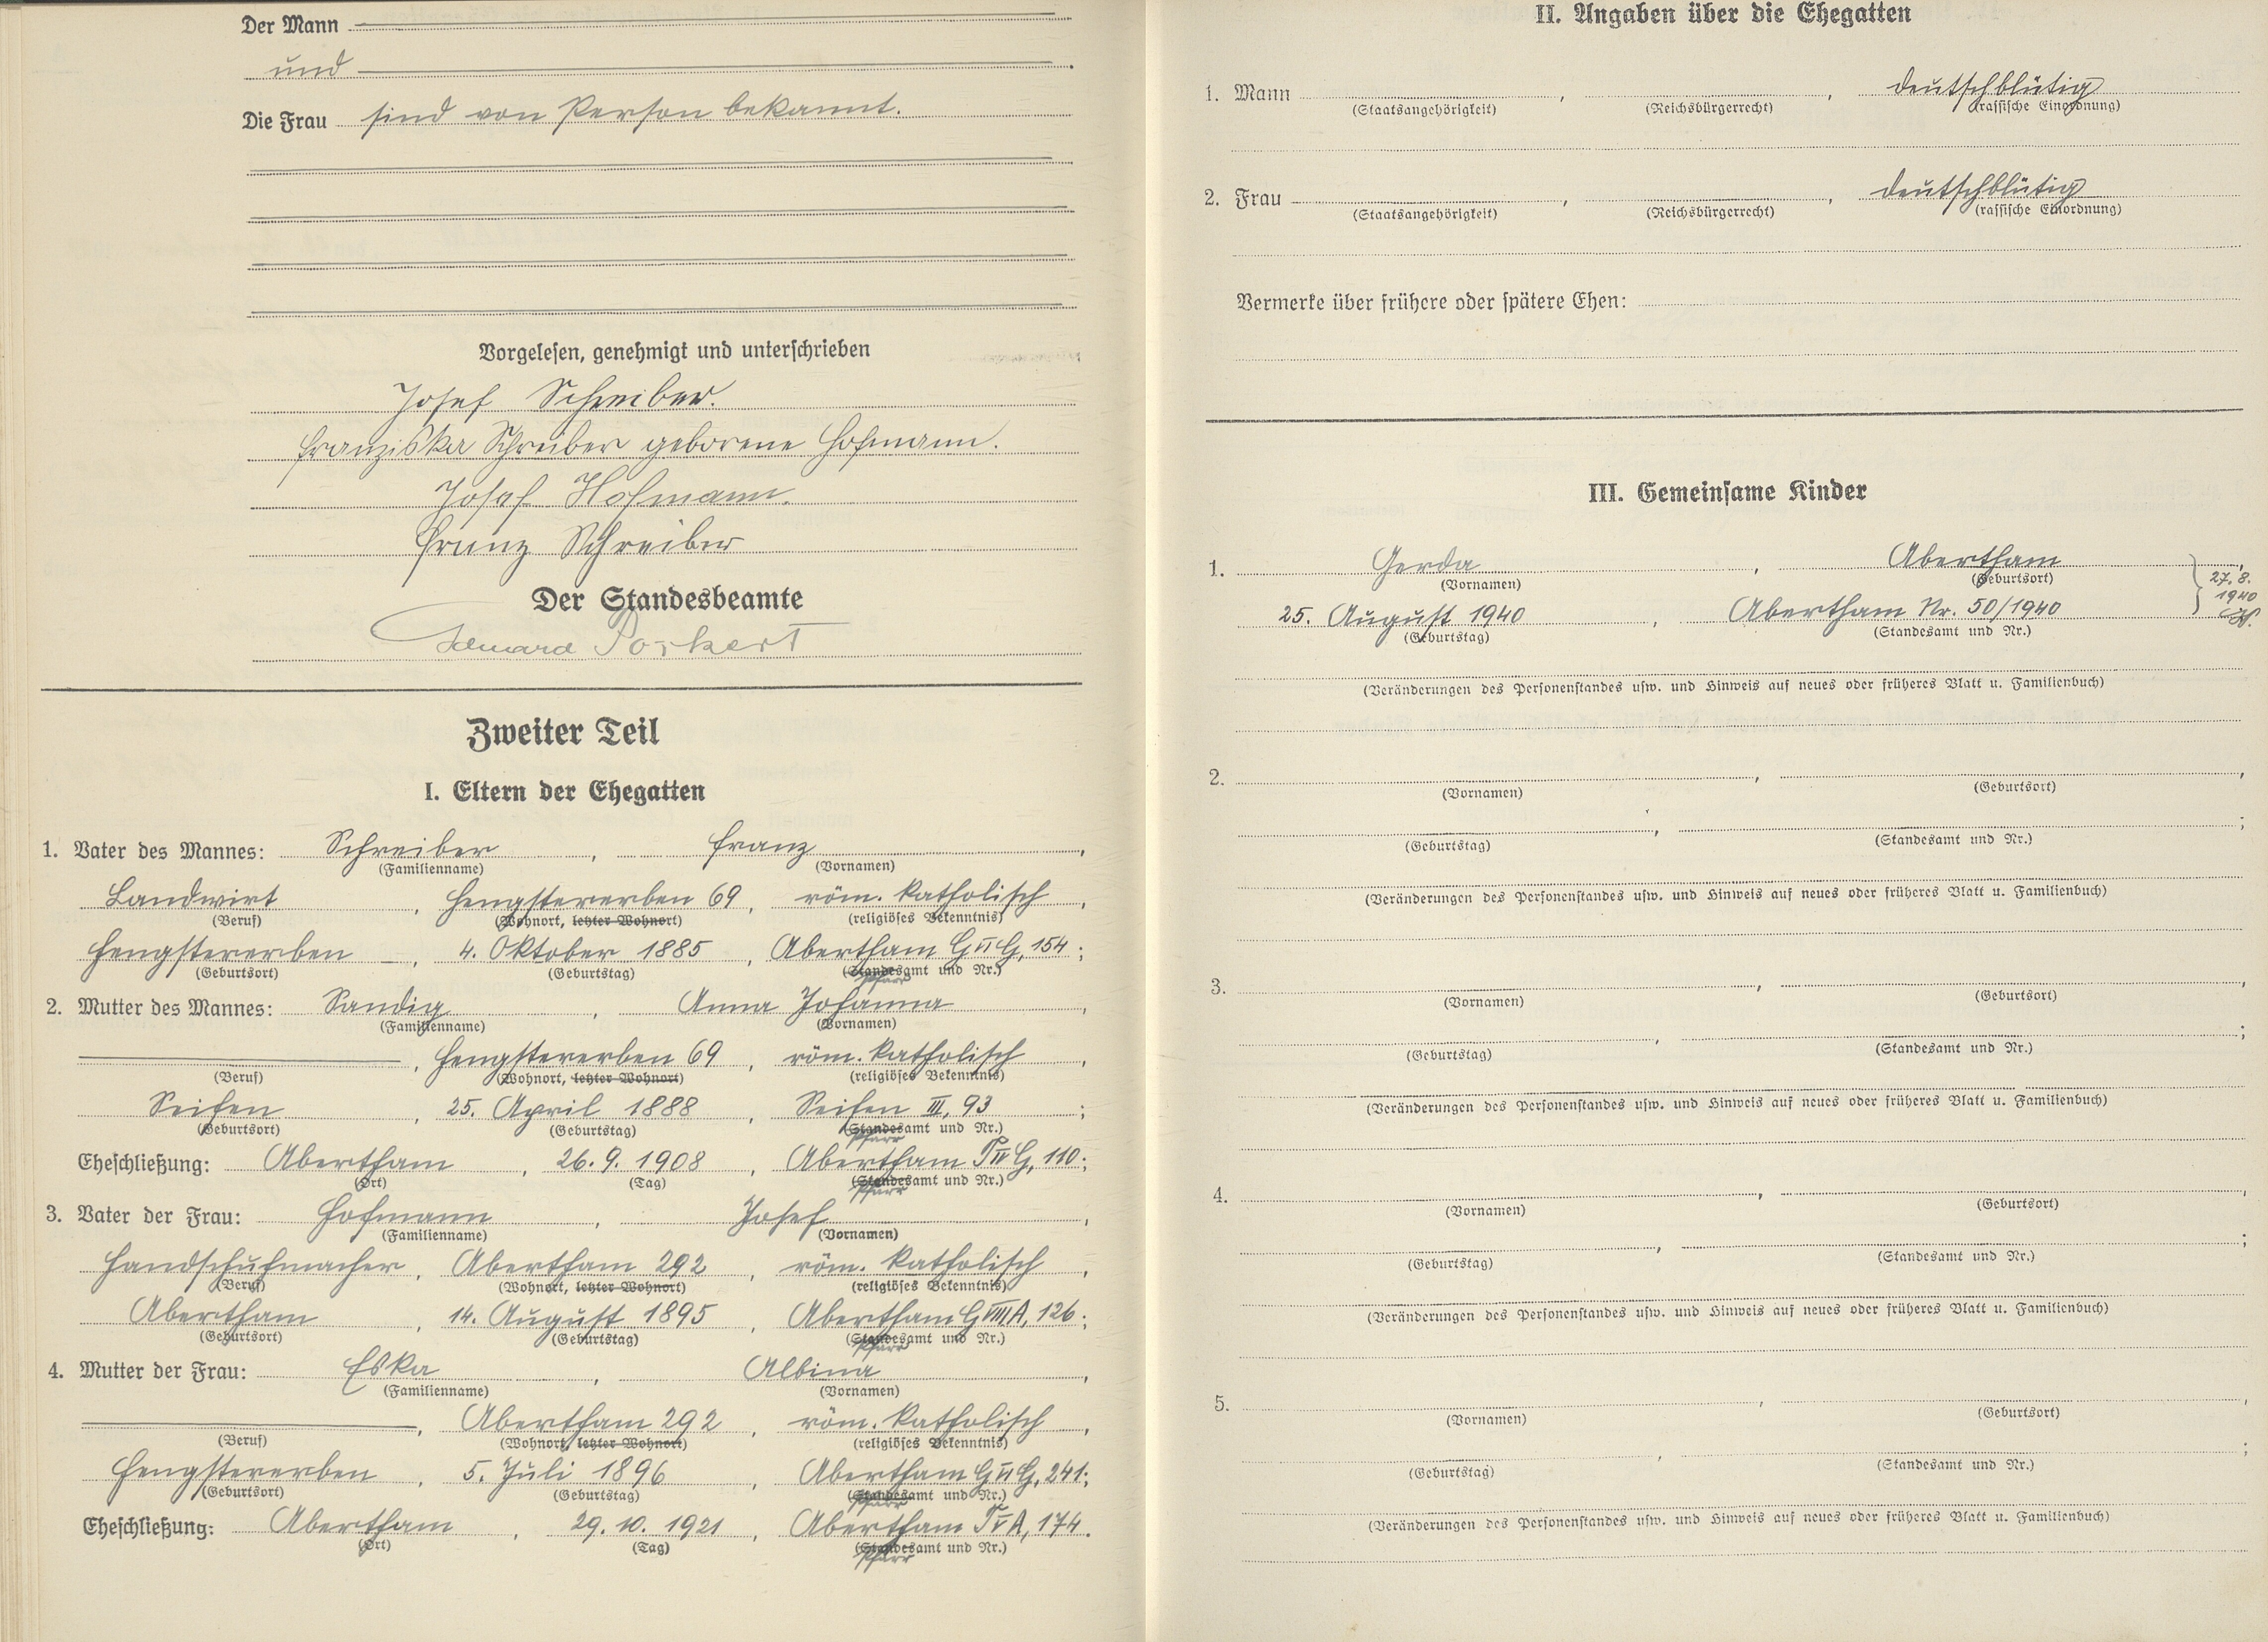 Der Mann
und
Die Frau sind von Person bekannt.
Vorgelesen, genehmigt und unterschrieben
Josef Schreiber.
Franziska Schreiber geborene Hofmann.
Josef Hofmann.
Franz Schreiber
Der Standesbeamte
Eduard Porkert
Zweiter Teil
I. Eltern der Ehegatten
1. Vater des Mannes: Schreiber, Franz,
(Familienname) (Vornamen)
Landwirt, Hengstererben 69, röm. katholisch,
(Beruf) (Wohnort, letzter Wohnort) (religiöses Bekenntnis)
Hengstererben, 4. Oktober 1885, Abertham G VI G, 154;
(Geburtsort) (Geburtstag) (Standesamt und Nr.)
Pfarr
2. Mutter des Mannes: Sandig, Anna Johanna,
(Familienname) (Vornamen)
, Hengstererben 69, röm. katholisch,
(Beruf) (Wohnort, letzter Wohnort) (religiöses Bekenntnis)
Seifen, 25. April 1888, Seifen III, 93;
(Geburtsort) (Geburtstag) (Standesamt und Nr.)
Pfarr
Eheschließung: Abertham, 26. 9. 1908, Abertham T IV G, 110;
(Ort) (Tag) (Standesamt und Nr.)
Pfarr
3. Vater der Frau: Hofmann, Josef,
(Familienname) (Vornamen)
Handschuhmacher, Abertham 292, röm. katholisch,
(Beruf) (Wohnort, letzter Wohnort) (religiöses Bekenntnis)
Abertham, 14. August 1895, Abertham G VIII A, 126;
(Geburtsort) (Geburtstag) (Standesamt und Nr.)
Pfarr
4. Mutter der Frau: Eska, Albina,
(Familienname) (Vornamen)
, Abertham 292, röm. katholisch,
(Beruf) (Wohnort, letzter Wohnort) (religiöses Bekenntnis)
Hengstererben, 5. Juli 1896, Abertham G VI G, 241;
(Geburtsort) (Geburtstag) (Standesamt und Nr.)
Pfarr
Eheschließung: Abertham, 29. 10. 1921, Abertham T V A, 174.
(Ort) (Tag) (Standesamt und Nr.)
Pfarr
II. Angaben über die Ehegatten
1. Mann , , deutschblütig
(Staatsangehörigkeit) (Reichsbürgerrecht) (rassische Einordnung)
2. Frau , , deutschblütig
(Staatsangehörigkeit) (Reichsbürgerrecht) (rassische Einordnung)
Vermerke über frühere oder spätere Ehen:
III. Gemeinsame Kinder
1. Gerda, Abertham,
(Vornamen) (Geburtsort)
27. 8.
1940
25. August 1940, Abertham Nr. 50/1940
(Geburtstag) (Standesamt und Nr.)
(Veränderungen des Personenstandes usw. und Hinweis auf neues oder früheres Blatt u. Familienbuch)
2. , ,
(Vornamen) (Geburtsort)
, ;
(Geburtstag) (Standesamt und Nr.)
(Veränderungen des Personenstandes usw. und Hinweis auf neues oder früheres Blatt u. Familienbuch)
3. , ,
(Vornamen) (Geburtsort)
, ;
(Geburtstag) (Standesamt und Nr.)
(Veränderungen des Personenstandes usw. und Hinweis auf neues oder früheres Blatt u. Familienbuch)
4. , ,
(Vornamen) (Geburtsort)
, ;
(Geburtstag) (Standesamt und Nr.)
(Veränderungen des Personenstandes usw. und Hinweis auf neues oder früheres Blatt u. Familienbuch)
5. , ,
(Vornamen) (Geburtsort)
, ;
(Geburtstag) (Standesamt und Nr.)
(Veränderungen des Personenstandes usw. und Hinweis auf neues oder früheres Blatt u. Familienbuch)